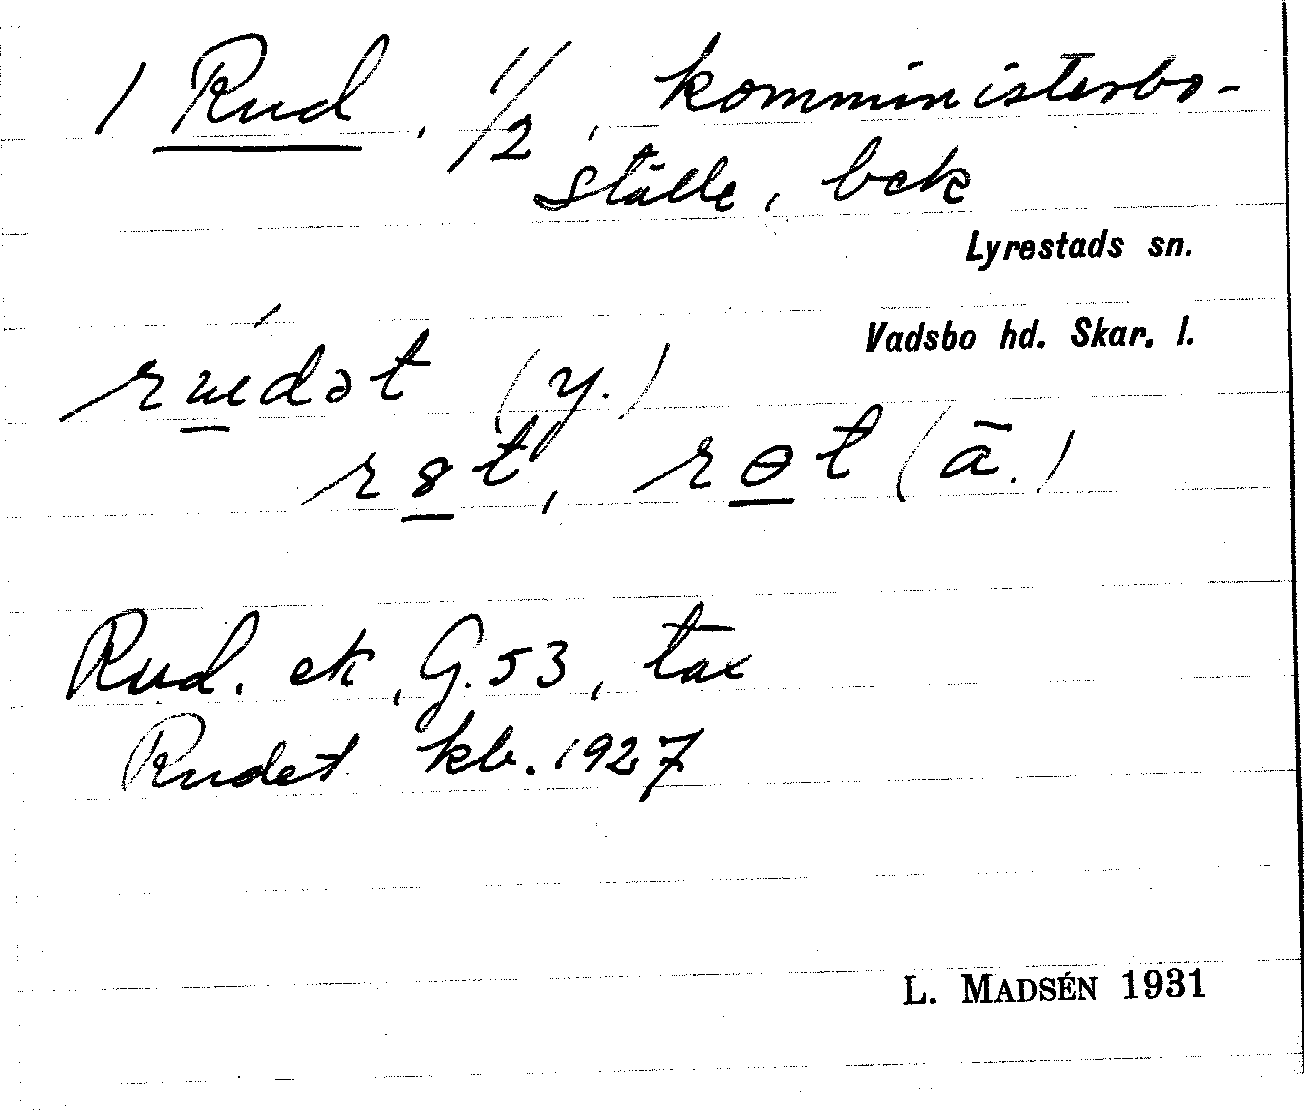 1 Rud, 1/2, komministerbo-
ställe, bek
Lyrestads sn.
Vadsbo hd. Skar. l.
rúdət (y.)
r8t, rɵt (ā.)
Rud. ek, G. 53, tax
Rudet kb. 1927
L. MADSÉN 1931